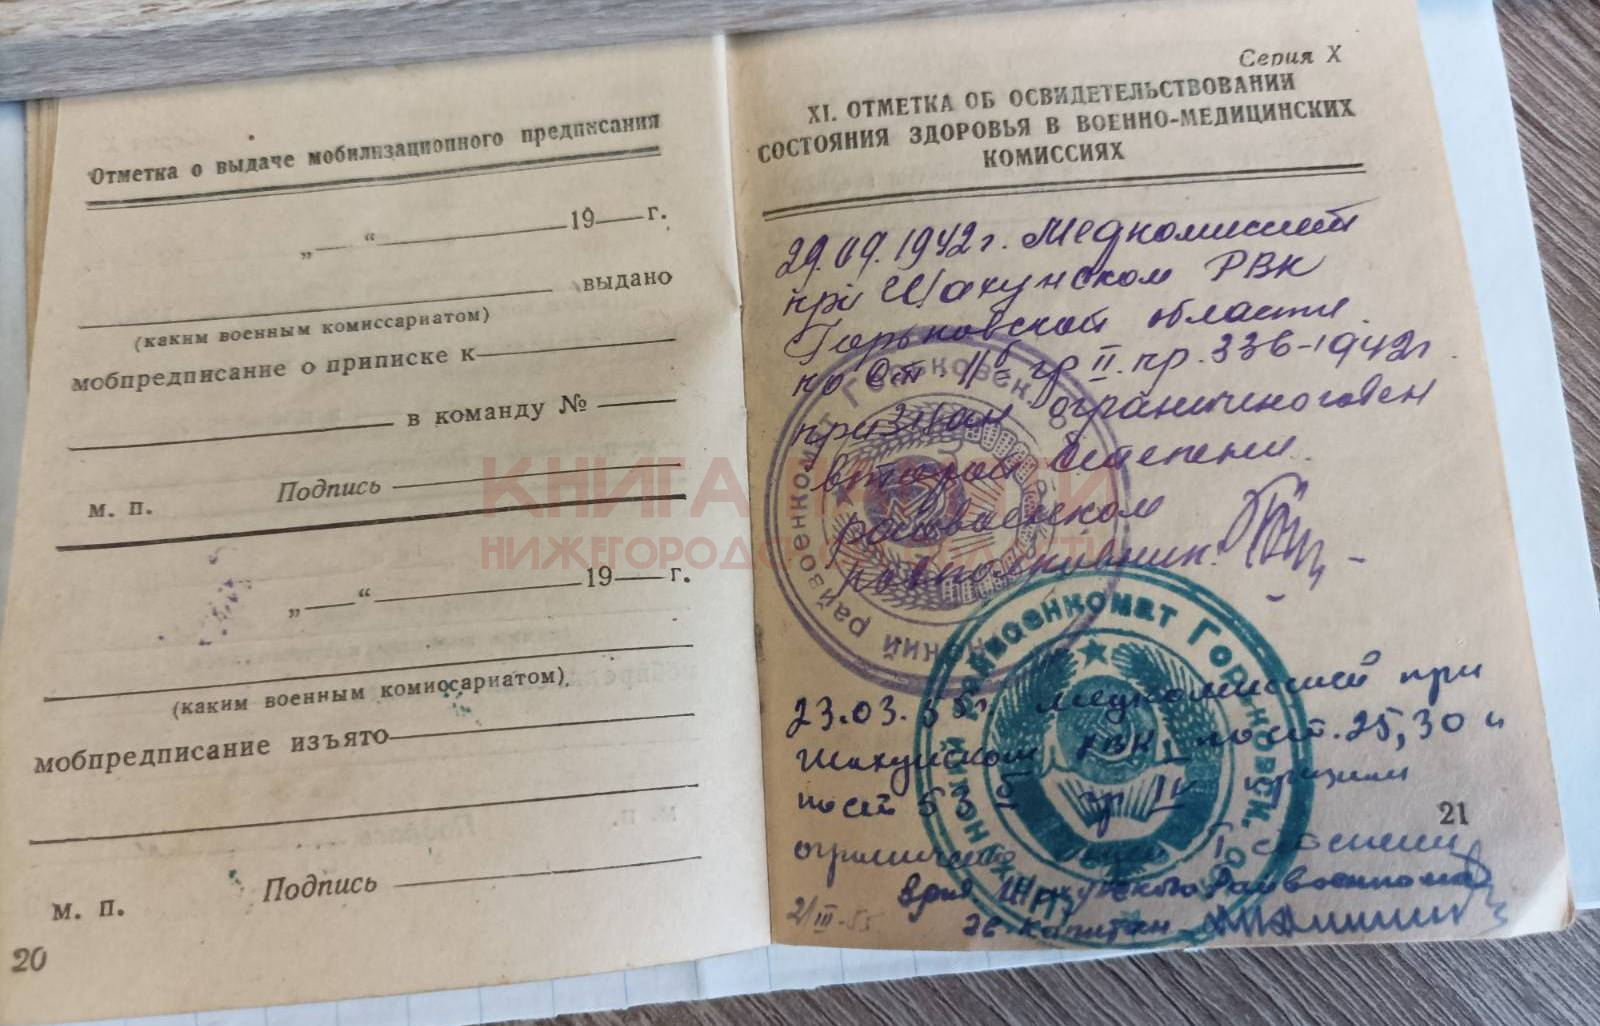 Отметка о выдаче мобилизационного предписания
„ “ 19 г.
выдано
(каким военным комиссариатом)
мобпредписание о приписке к
в команду №
м. п. Подпись
„ “ 19 г.
(каким военным комиссариатом)
мобпредписание изъято
м. п. Подпись
20
Серия X
XI. ОТМЕТКА ОБ ОСВИДЕТЕЛЬСТВОВАНИИ
СОСТОЯНИЯ ЗДОРОВЬЯ В ВОЕННО-МЕДИЦИНСКИХ
КОМИССИЯХ
29.09.1942 г. Медкомиссией
при Шахунском РВК
Горьковской области
по ст. гр II. пр. 336-1942г.
признан ограниченно годен
второй степени.
райвоенком
подполковник
23.03.55г. медкомиссией при
Шахунском РВК по ст. 25, 30 и
по ст 53 гр IV признан
ограниченно I степени
Врид Шахунского Райвоенкома
капитан
21/III-55
21
райвоенкомат Горьковск. об
райвоенкомат Горьковск. об
КНИГА ПАМЯТИ
НИЖЕГОРОДСКОЙ ОБЛАСТИ